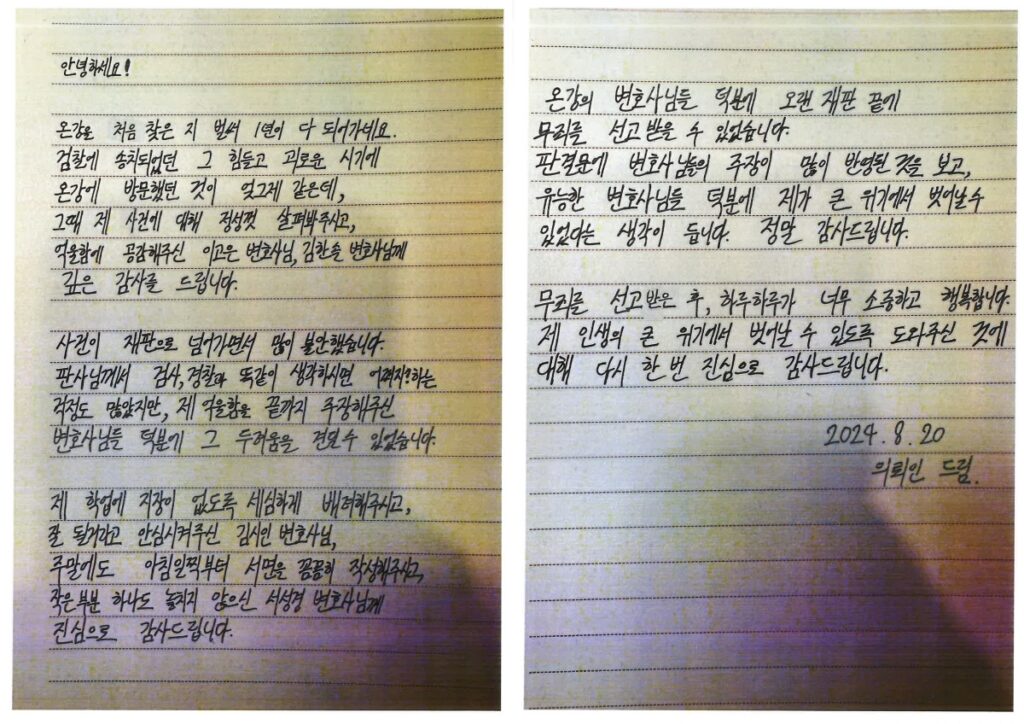 안녕하세요!
온강을 처음 찾은 지 벌써 1년이 다 되어가네요.
검찰에 송치되었던 그 힘들고 괴로운 시기에
온강에 방문했던 것이 엊그제 같은데,
그때 제 사건에 대해 정성껏 살펴봐주시고,
억울함에 공감해주신 이고은 변호사님, 김한솔 변호사님께
깊은 감사를 드립니다.
사건이 재판으로 넘어가면서 많이 불안했습니다.
판사님께서 검사, 경찰과 똑같이 생각하시면 어쩌지?하는
걱정도 많았지만, 제 억울함을 끝까지 주장해주신
변호사님들 덕분에 그 두려움을 견딜 수 있었습니다.
제 학업에 지장이 없도록 세심하게 배려해주시고,
잘 될거라고 안심시켜주신 김시인 변호사님,
주말에도 아침일찍부터 서면을 꼼꼼히 작성해주시고,
작은 부분 하나도 놓치지 않으신 서성경 변호사님께
진심으로 감사드립니다.
온강의 변호사님들 덕분에 오랜 재판 끝에
무죄를 선고 받을 수 있었습니다.
판결문에 변호사님들의 주장이 많이 반영된 것을 보고,
유능한 변호사님들 덕분에 제가 큰 위기에서 벗어날 수
있었다는 생각이 듭니다. 정말 감사드립니다.
무죄를 선고 받은 후, 하루하루가 너무 소중하고 행복합니다.
제 인생의 큰 위기에서 벗어날 수 있도록 도와주신 것에
대해 다시 한 번 진심으로 감사드립니다.
2024. 8. 20
의뢰인 드림.